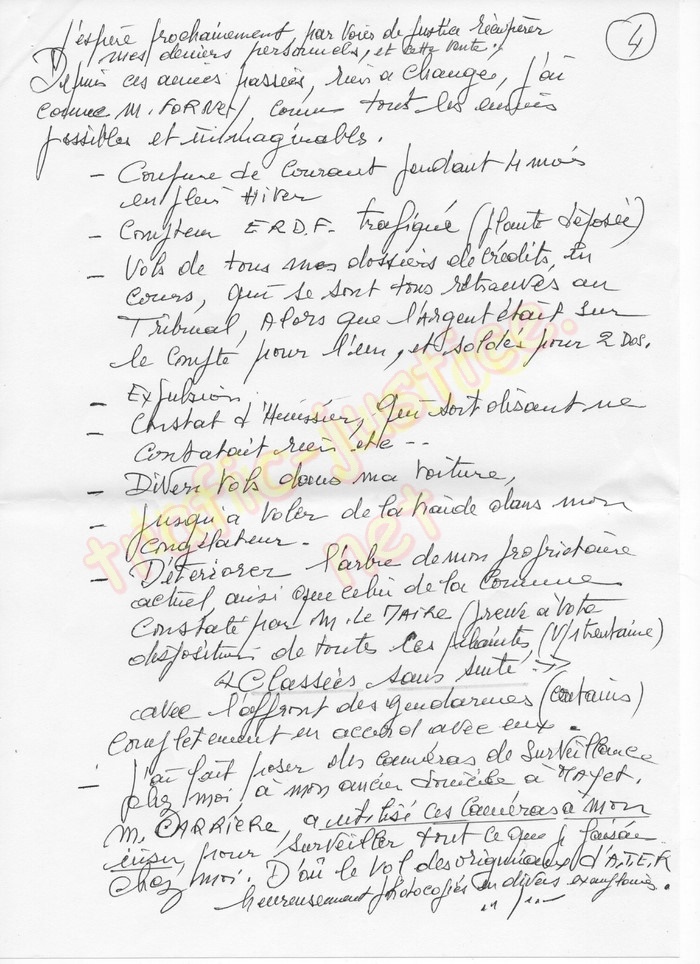 J'espère prochainement, par voies de Justice récupérer
mes deniers personnels, et cette vente.,
4
Depuis ces années passées, rien a changée, j'ai
comme M. FORNEY, connu tout les ennuis
possibles et inimaginables.
- Coupure de courant pendant 4 mois
en plein Hiver
- Compteur E.R.D.F. trafiqué (plainte déposée)
- Vols de tous mes dossiers de crédits, en
cours, qui se sont tous retrouvés au
Tribunal, Alors que l'Argent était sur
le compte pour l'un, et soldés pour 2 Dos.
- Expulsion.
- Constat d'Huissier, qui soit disant ne
constatait rien été --
- Divers Vols dans ma voiture,
- Jusqu'à voler de la viande dans mon
congélateur.
- Détériorer l'arbre de mon propriétaire
actuel, ainsi que celui de la Commune
Constaté par M. Le Maire (preuve à votre
disposition de toutes ces plaintes, (1/trentaine)
Classées sans suite
avec l'affront des gendarmes (certains)
complètement en accord avec eux.
- J'ai fait poser des caméras de Surveillance
chez moi, à mon ancien domicile à Mayet.
M. CARRIERE, a utilisé ces caméras à mon
insu, pour surveiller tout ce que je faisais
chez moi. D'où le vol des originaux d'A.T.E.R
heureusement photocopiés en divers exemplaires.
traffic-justice.
net